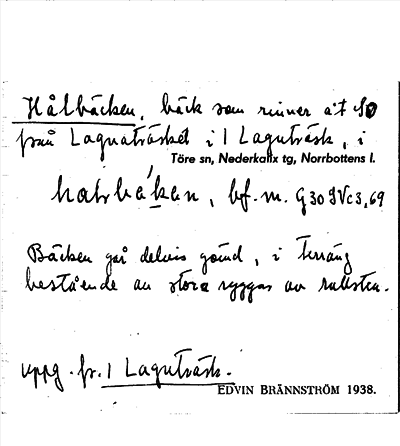 Hålbäcken, bäck som rinner åt SO
från Lagnaträsket i 1 Lagnträsk, i
Töre sn, Nederkalix tg, Norrbottens l.
bf. m. G30 SVc3, 69
Bäcken går delvis grund, i terräng
bestående av stora ryggar av rullsten.
uppg. fr. 1 Lagnträsk.
EDVIN BRÄNNSTRÖM 1938.